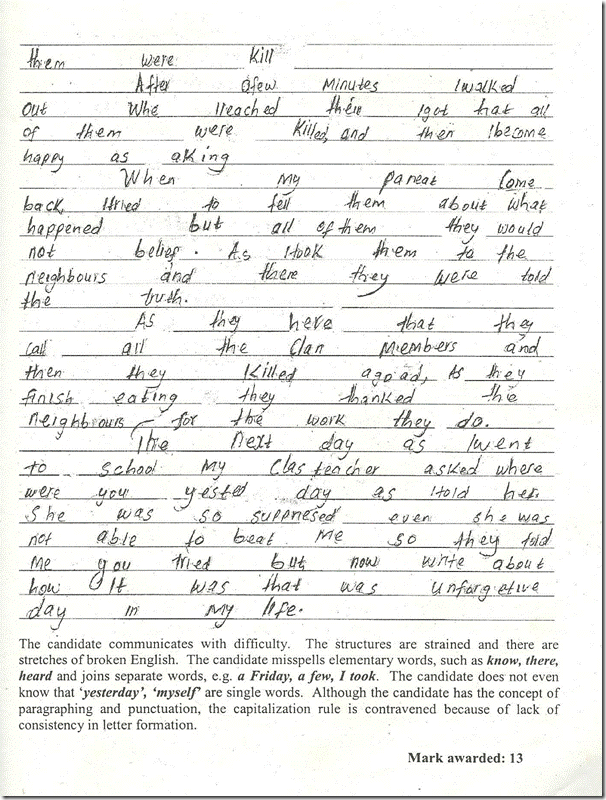 them were kill
After afew Minutes Iwalked
out whe Ireached there Igot that all
of them were killed, and then Ibecome
happy as aking
When my pareat come
back, Itried to tell them about what
happened but all of them they would
not belief. As Itook them to the
neighbours and there they were told
the truth.
As they here that they
call all the clan members and
then they killed agoad, As they
finish eating they thanked the
neighbours for the work they do.
The next day as Iwent
to school my clas teacher asked where
were you yested day as Itold her.
She was so suppresed even she was
not able to beat me so they told
me you tried but now write about
how it was that was unforgetive
day in my life.
The candidate communicates with difficulty. The structures are strained and there are
stretches of broken English. The candidate misspells elementary words, such as know, there,
heard and joins separate words, e.g. a Friday, a few, I took. The candidate does not even
know that ‘yesterday’, ‘myself’ are single words. Although the candidate has the concept of
paragraphing and punctuation, the capitalization rule is contravened because of lack of
consistency in letter formation.
Mark awarded: 13